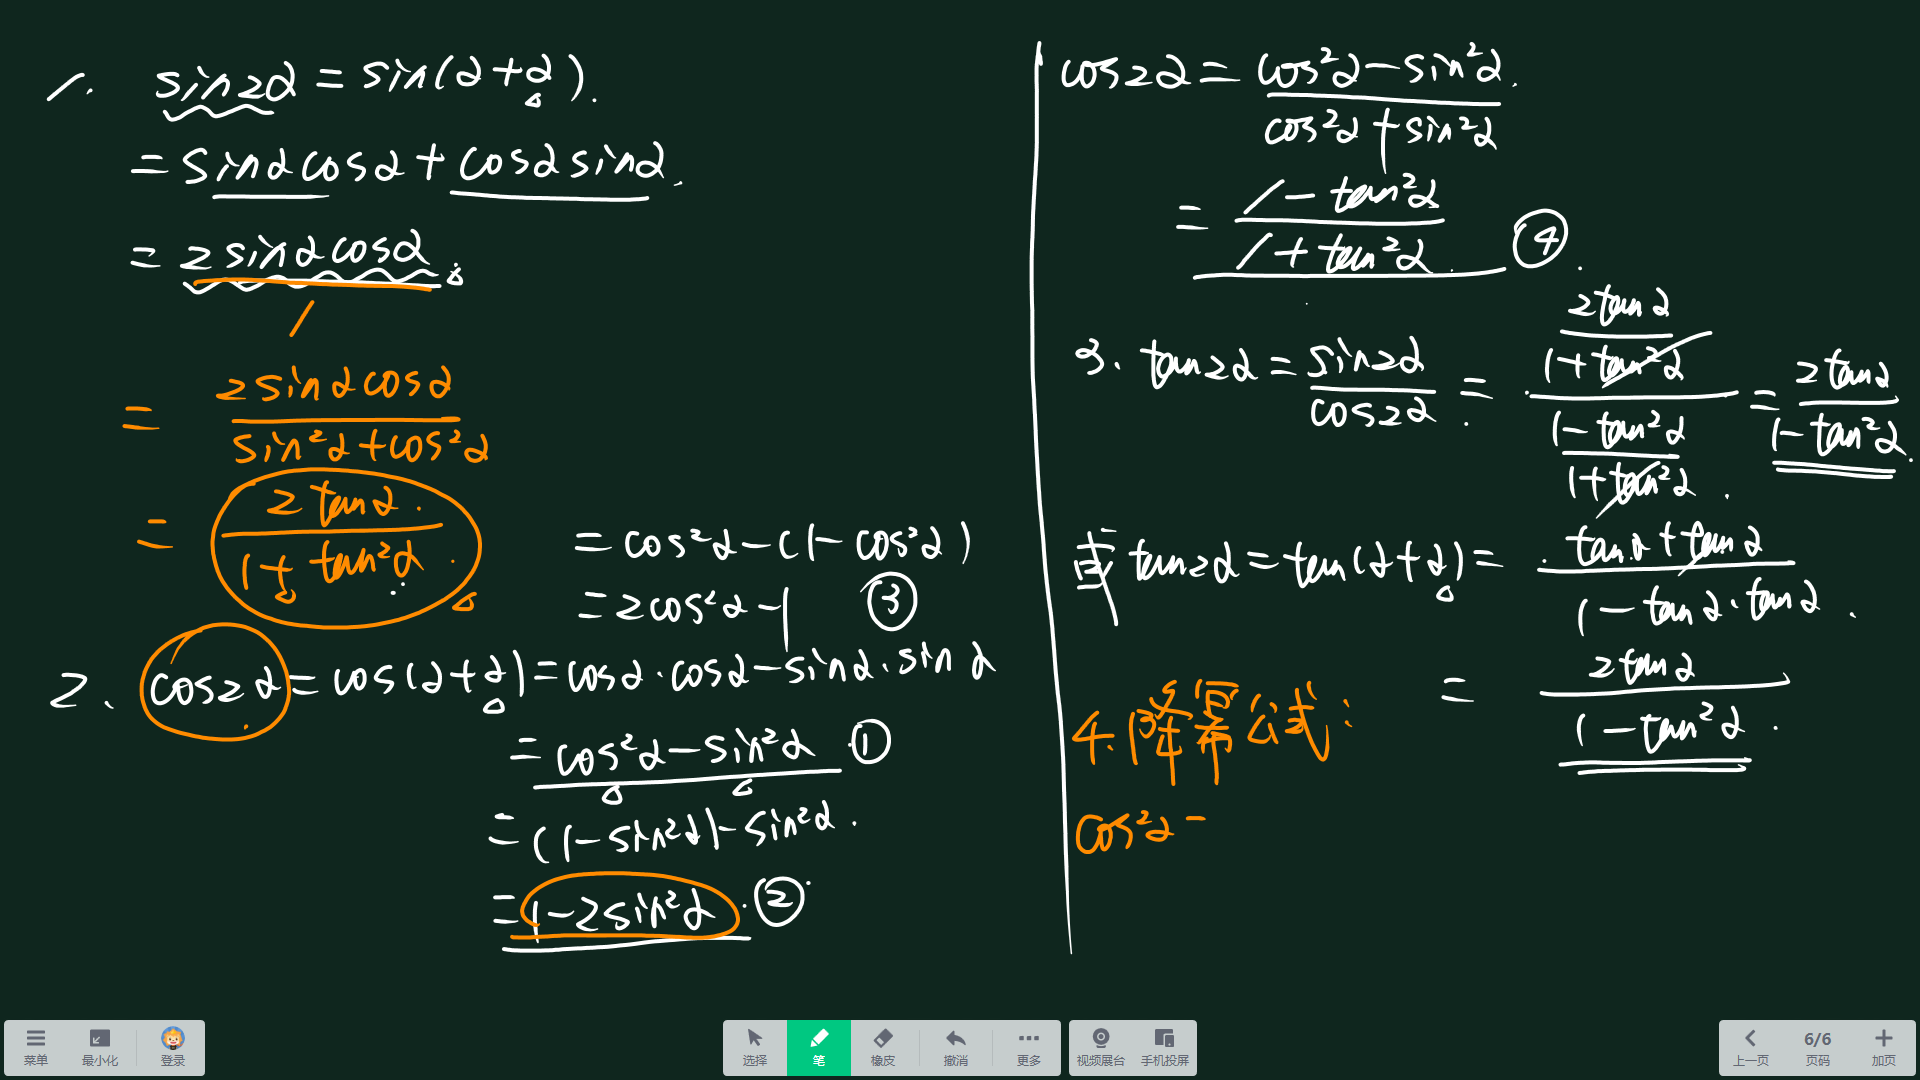 1. sin2α = sin(α+α).
= sinαcosα + cosαsinα.
= 2sinαcosα.
1
= 2sinαcosα / sin²α+cos²α
= 2tanα / 1+tan²α
2、cos2α = cos(α+α) = cosα·cosα-sinα·sinα
= cos²α-sin²α ①
= (1-sin²α)-sin²α.
= 1-2sin²α ②
= cos²α-(1-cos²α)
= 2cos²α-1 ③
cos2α = cos²α-sin²α / cos²α+sin²α
= 1-tan²α / 1+tan²α ④
3. tan2α = sin2α / cos2α = (2tanα / 1+tan²α) / (1-tan²α / 1+tan²α) = 2tanα / 1-tan²α.
或 tan2α = tan(α+α) = tanα+tanα / 1-tanα·tanα.
= 2tanα / 1-tan²α.
4.降幂公式:
cos²α -
菜单
最小化
登录
选择
笔
橡皮
撤消
更多
视频展台
手机投屏
上一页
6/6
页码
加页